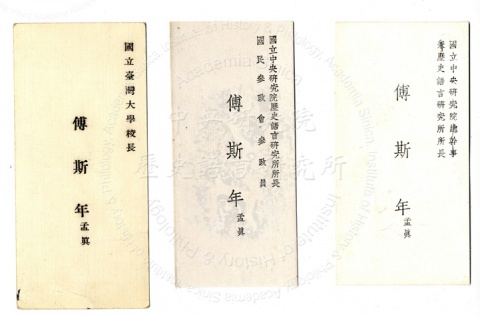 國立臺灣大學校長
傅斯年
孟真
國立中央研究院歷史語言研究所所長
國民參政會參政員
傅斯年
孟真
國立中央研究院總幹事
兼歷史語言研究所所長
傅斯年
孟真
中央研究院
歷史語言研究所
Institute of History & Philology, Academia Sinica